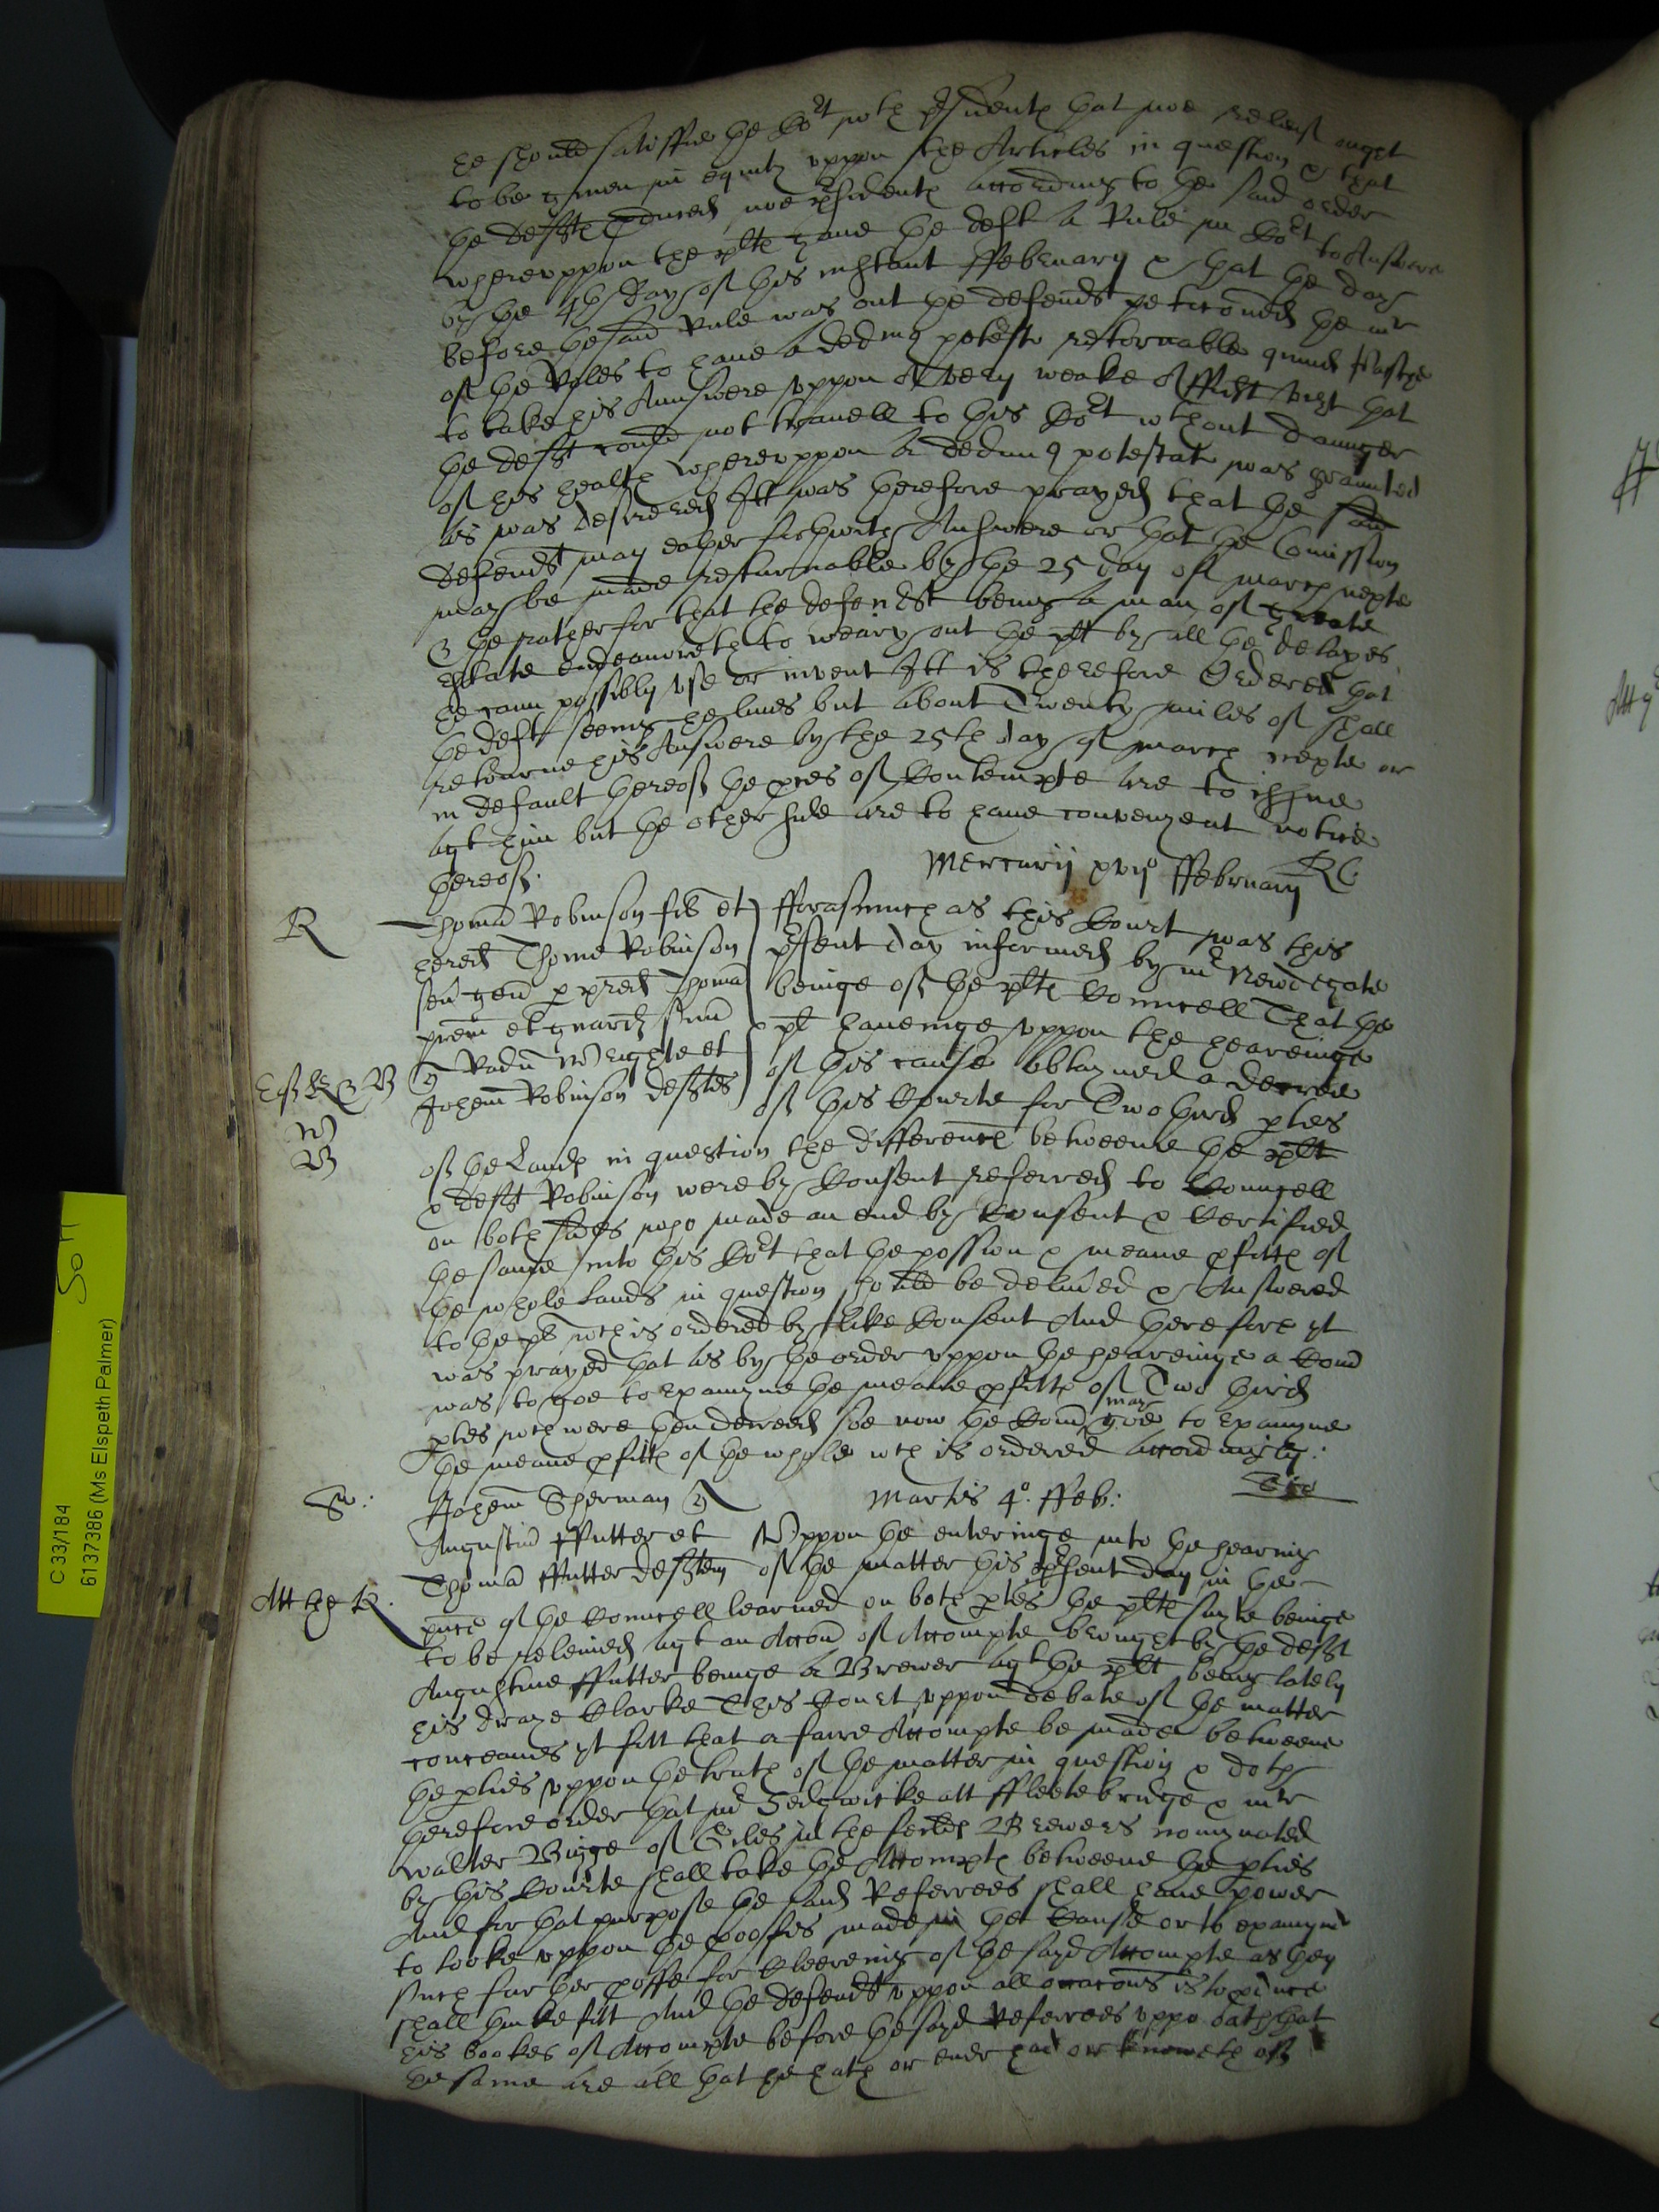 he should satisfie the Cort wth psidents that noe releif ought
to be given in equity uppon the Articles in question & that
the defte produced noe psidents according to the said order
whereuppon the plte gave the deft a Rule in Cort to Answere
by the 4th day of this instant ffebruary & that the day
before the said Rule was out the defendt peticoned the mr
of the Rolles to have a dedimus potest retornable quind Pasche
to take his Answere uppon a very weake Affidt viz that
the deft could not travell to this Cort wthout daunger
of his health whereuppon a dedimus potestat was graunted
as was desired Itt was therefore prayed that the said
defendt may eather forthwith Answere or that the Comission
may be made returnable by the 25 day of march nexte
& the rather for that the defendt being a man of greate
estate endeavoreth to weary out the plt by all the delayes
he cann possibly use or invent Itt is therefore Ordered that
the deft seeing he lives but about Twenty miles of shall
retourne his Answere by the 25th day of march nexte or
in default thereof the pces of Contempte are to issue
agt him but the other side are to have convenyent notice
thereof.
Mercurij xvjo ffebruary RC
R
Thomas Robinson fil et
hered Thome Robinson
sen gen p pred Thomam
prem et guard suum
q Radu Wrighte et
Johem Robinson deftes
fforasmuch as this Court was this
psent day informed by mr Newdegate
beinge of the plte Councell That the
plt haveinge uppon the heareinge
of this cause obtayned a decree
of this Courte for Two third ptes
W
B
of the Lands in question the difference betweene the plt
& deft Robinson were by Consent referred to Councell
on both sides who made an end by Consent & Certified
the same into this Cort that the possion & meane pfitts of
the whole Lands in question should be delivred & Answered
to the plt wch is ordered by like Consent And therefore yt
was prayed that as by the order uppon the heareinge a Comn
was to goe to examyne the meane pfitts of Two third
ptes wch were then decreed soe now the Comn may goe to examyne
the meane pfitts of the whole wch is ordered accordingly:
Martis 4o ffeb:
Johem Sherman q
Augustin ffutter et
Thomam ffutter deftem
Uppon the enteringe into the hearing
of the matter this psent day in the
pnce of the Councell learned on both ptes the plte suyte beinge
to be releived agt an Accon of Accompte brought by the deft
Augustine ffutter beinge a Brewer agt the plt being lately
his draye Clarke This Court uppon debate of the matter
conceaves yt fitt that a faire Accompte be made betweene
the pties uppon the truth of the matter in question & doth
therefore order that mr Sedgwicke att ffleetebridge & mr
Walter Binge of St Giles in the feilds Brewers nomynated
by this Courte shall take the Accompte betweene the pties
And for that purpose the said Referrees shall have power
to looke uppon the prooffes made in the Cause or to examyne
such further proffe for Cleering of the sayd Accompte as they
shall thinke fitt And the defendt uppon all occacons is to pduce
his bookes of Accompte before the sayd Referrees uppo oath that
the same are all that he hath or ever had or knoweth of
C 33/184
6137386 (Ms Elspeth Palmer)